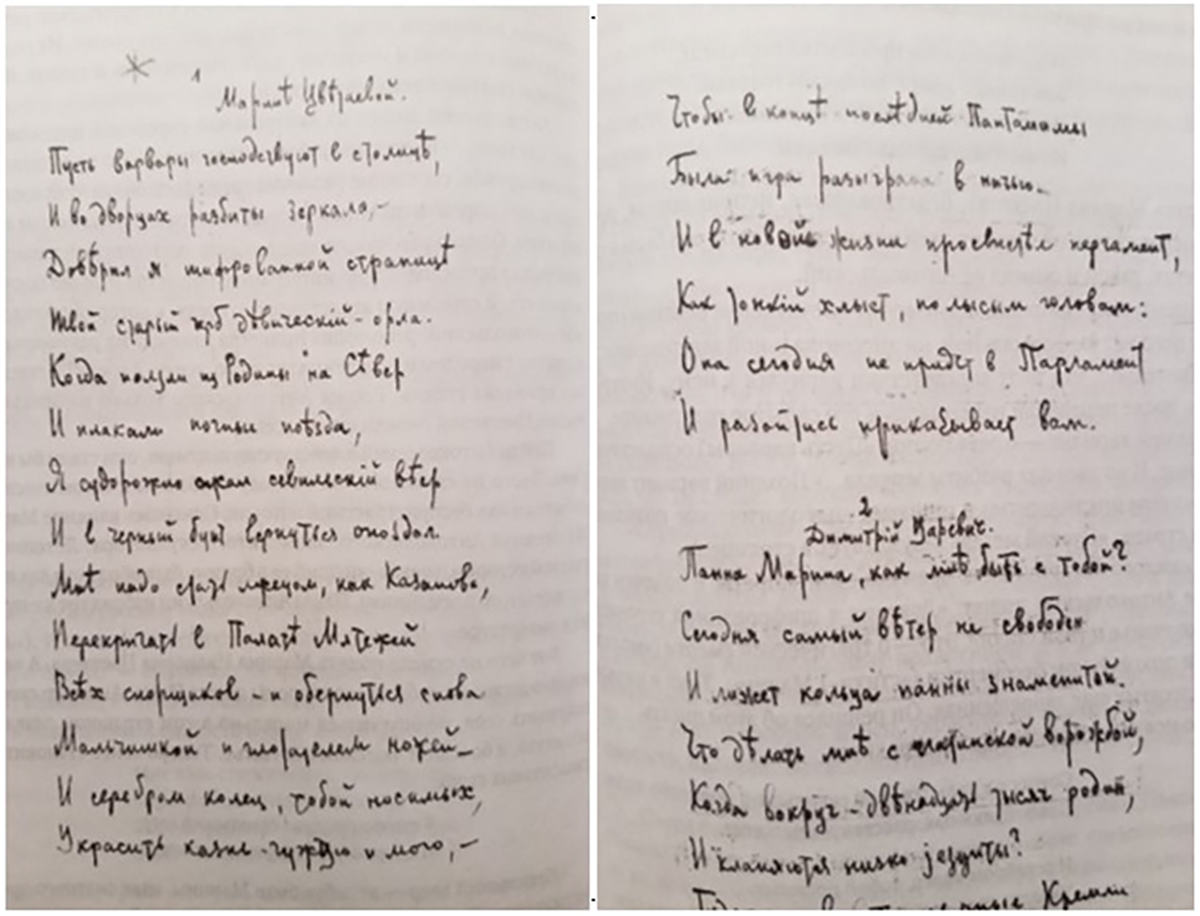 1
Маринѣ Цвѣтаевой.
Пусть варвары господствуют в столицѣ,
И во дворцах разбиты зеркала –
Довѣрил я шифрованной страницѣ
Твой старый герб дѣвическій – орла.
Когда ползли из Родины на Сѣвер
И плакали ночные поѣзда,
Я судорожно сжал севильскій вѣер
И в черный бунт вернуться опоздал
Мнѣ надо сразу лжецом, как Казанова,
Перекричать в Палатѣ Мятежей
Всѣх спорщиков – и обернуться снова
Мальчишкой и глотателем ножей –
И серебром колец, тобой носимых,
Украсить казнь чужую и мою, –
Чтобы в концѣ послѣдней Пантомимы
Была игра разыграна в ничью –
И в новой жизни просвистѣл пергамент,
Как тонкій хлыст, по лысым головам:
Она сегодня не придет в Парламент
И разойтись приказывает вам.
2
Димитрій Царевич.
Панна Марина, как мнѣ быть с тобой?
Сегодня самый вѣтер не свободен
И лижет кольца панны знаменитой.
Что дѣлать мнѣ с латинской ворожбой,
Когда вокруг – двѣнадцать тысяч родин,
И кланяются низко іезуиты?
Кремли